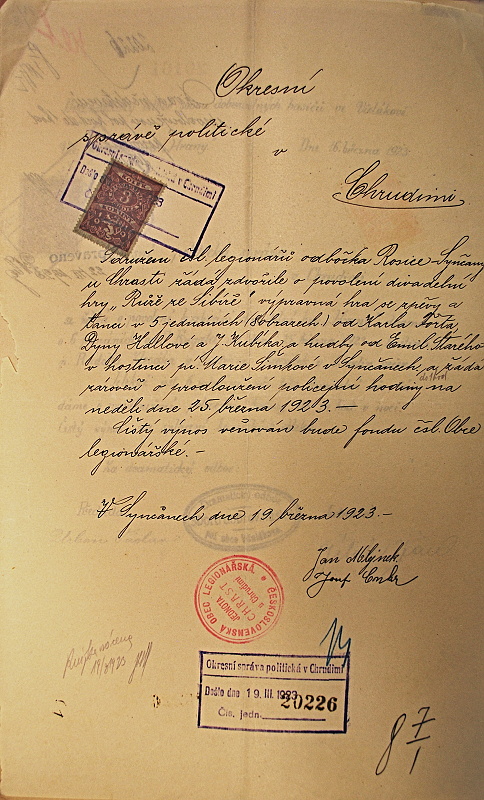 Okresní
správě politické
v
Chrudimi
Okresní správa politická v Chrudimi
Došlo dne
Sdružení čsl. legionářů odbočka Rosice-Synčany
u Chrasti žádá zdvořile o povolení divadelní
hry „Růže ze Sibiře" výpravná hra se zpěvy a
tanci v 5 jednáních (8 obrazech) od Karla Fořta,
Dýny Hallové a J. Kubíka a hudby od Emil. Starého
v hostinci pí. Marie Šimkové v Synčanech, a žádá
zároveň o prodloužení policejní hodiny na
neděli dne 25. března 1923.—
Čistý výnos věnován bude fondu čsl. Obce
legionářské.-
V Synčanech dne 19. března 1923.-
Jan Mlýnek
Josef
ČESKOSLOVENSKÁ OBEC LEGIONÁŘSKÁ
JEDNOTA
CHRAST
u Chrudimi
Okresní správa politická v Chrudimi
Došlo dne 19. III. 1923
20226
Čís. jedn.
8 7/1